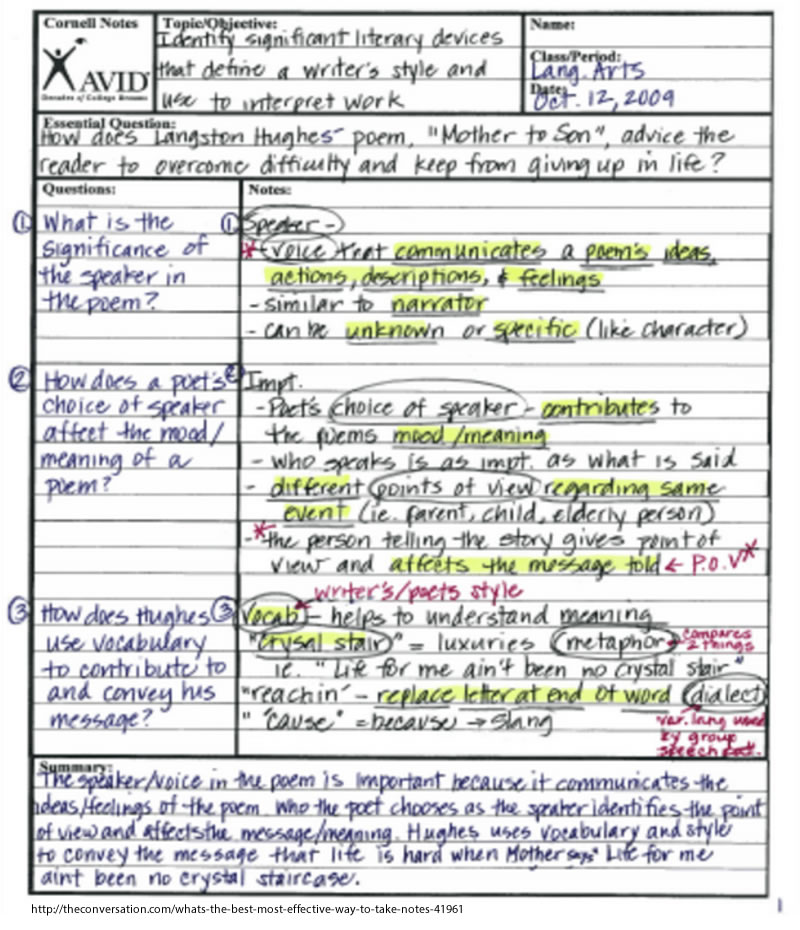 Cornell Notes
AVID
Decades of College Dreams
Topic/Objective:
Identify significant literary devices
that define a writer's style and
use to interpret work
Name:
Class/Period:
Lang. Arts
Date:
Oct. 12, 2009
Essential Question:
How does Langston Hughes' poem, "Mother to Son", advice the
reader to overcome difficulty and keep from giving up in life?
Questions:
① What is the
significance of
the speaker in
the poem?
② How does a poet's
choice of speaker
affect the mood/
meaning of a
poem?
③ How does Hughes
use vocabulary
to contribute to
and convey his
message?
Notes:
① Speaker -
* voice that communicates a poem's ideas,
actions, descriptions, & feelings
- similar to narrator
- can be unknown or specific (like character)
② Impt.
- Poet's choice of speaker - contributes to
the poems mood/meaning
- who speaks is as impt. as what is said
- different points of view regarding same
event (ie. parent, child, elderly person)
-* the person telling the story gives point of
view and affects the message told ← P.O.V*
writer's/poets style
③ Vocab - helps to understand meaning
"crysal stair" = luxuries (metaphor) compares
2 things
ie. "Life for me ain't been no crystal stair"
"reachin' - replace letter at end of word (dialect)
" 'cause" = because → slang
var. lang used
by group
speech patt.
Summary:
The speaker/voice in the poem is important because it communicates the
ideas/feelings of the poem. Who the poet chooses as the speaker identifies the point
of view and affects the message/meaning. Hughes uses vocabulary and style
to convey the message that life is hard when Mother says "Life for me
aint been no crystal staircase.
http://theconversation.com/whats-the-best-most-effective-way-to-take-notes-41961
1